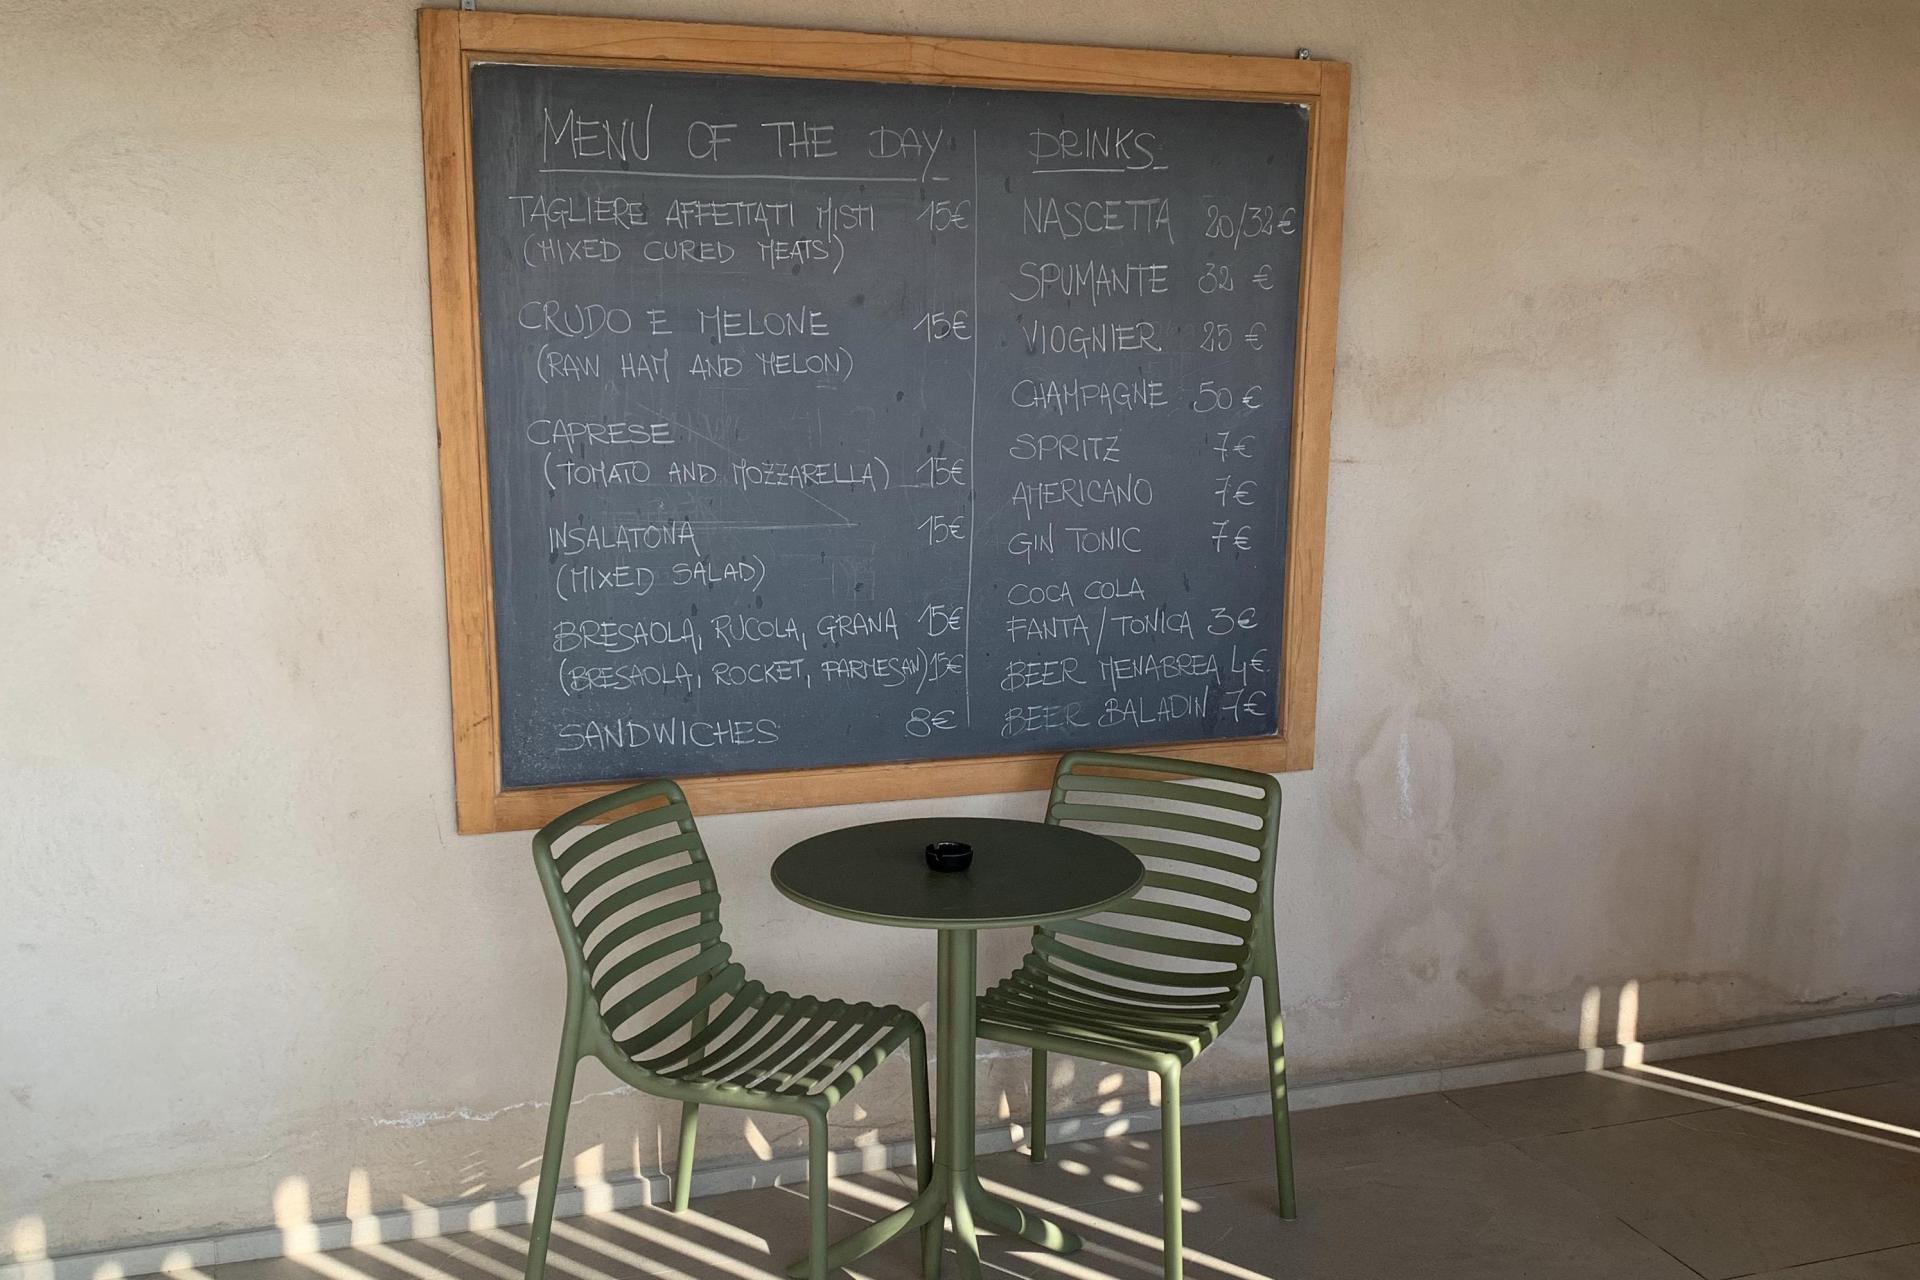 MENU OF THE DAY
TAGLIERE AFFETTATI MISTI 15€
(MIXED CURED MEATS)
CRUDO E MELONE 15€
(RAW HAM AND MELON)
CAPRESE
(TOMATO AND MOZZARELLA) 15€
INSALATONA 15€
(MIXED SALAD)
BRESAOLA, RUCOLA, GRANA 15€
(BRESAOLA, ROCKET, PARMESAN) 15€
SANDWICHES 8€
DRINKS
NASCETTA 20/32€
SPUMANTE 32 €
VIOGNIER 25 €
CHAMPAGNE 50 €
SPRITZ 7€
AMERICANO 7€
GIN TONIC 7€
COCA COLA
FANTA/TONICA 3€
BEER MENABREA 4€
BEER BALADIN 7€